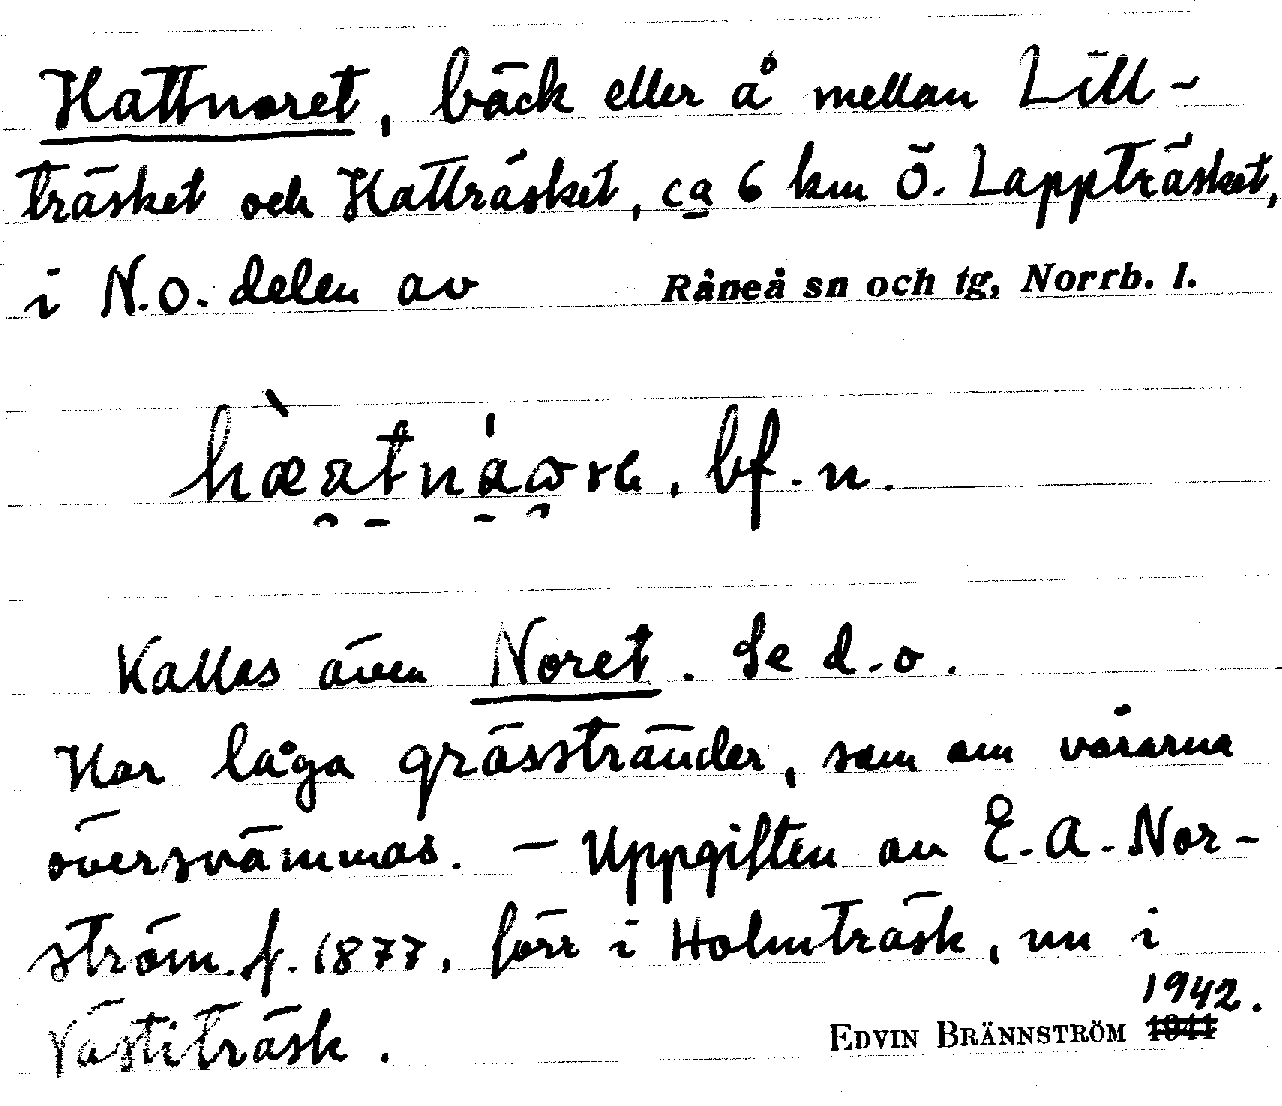 Hattnoret, bäck eller å mellan Lill-
träsket och Hatträsket, ca 6 km Ö. Lappträsket,
i N.O. delen av Råneå sn och tg, Norrb. l.
bf. n.
Kallas även Noret. Se d.o.
Har låga grässtränder, som om vårarna
översvämmas. – Uppgiften av E.A. Nor-
ström. f. 1877, förr i Holmträsk, nu i
Västiträsk.
1942.
EDVIN BRÄNNSTRÖM 1941